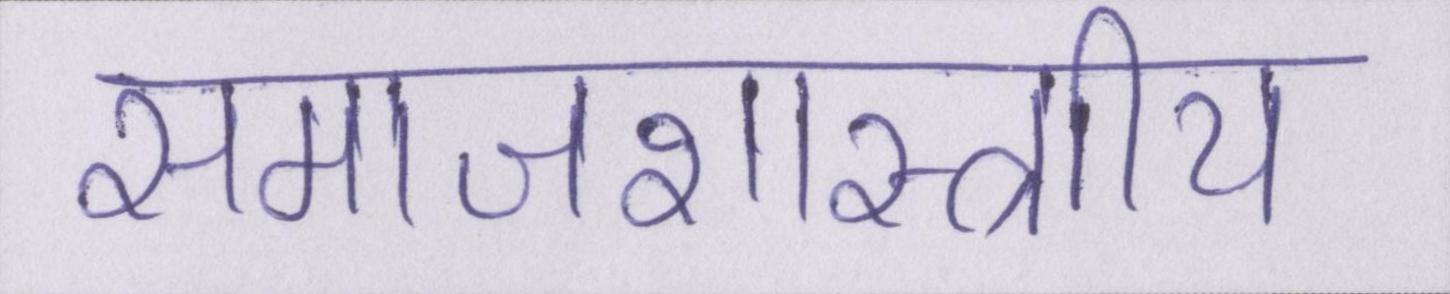 समाजशास्त्राीय